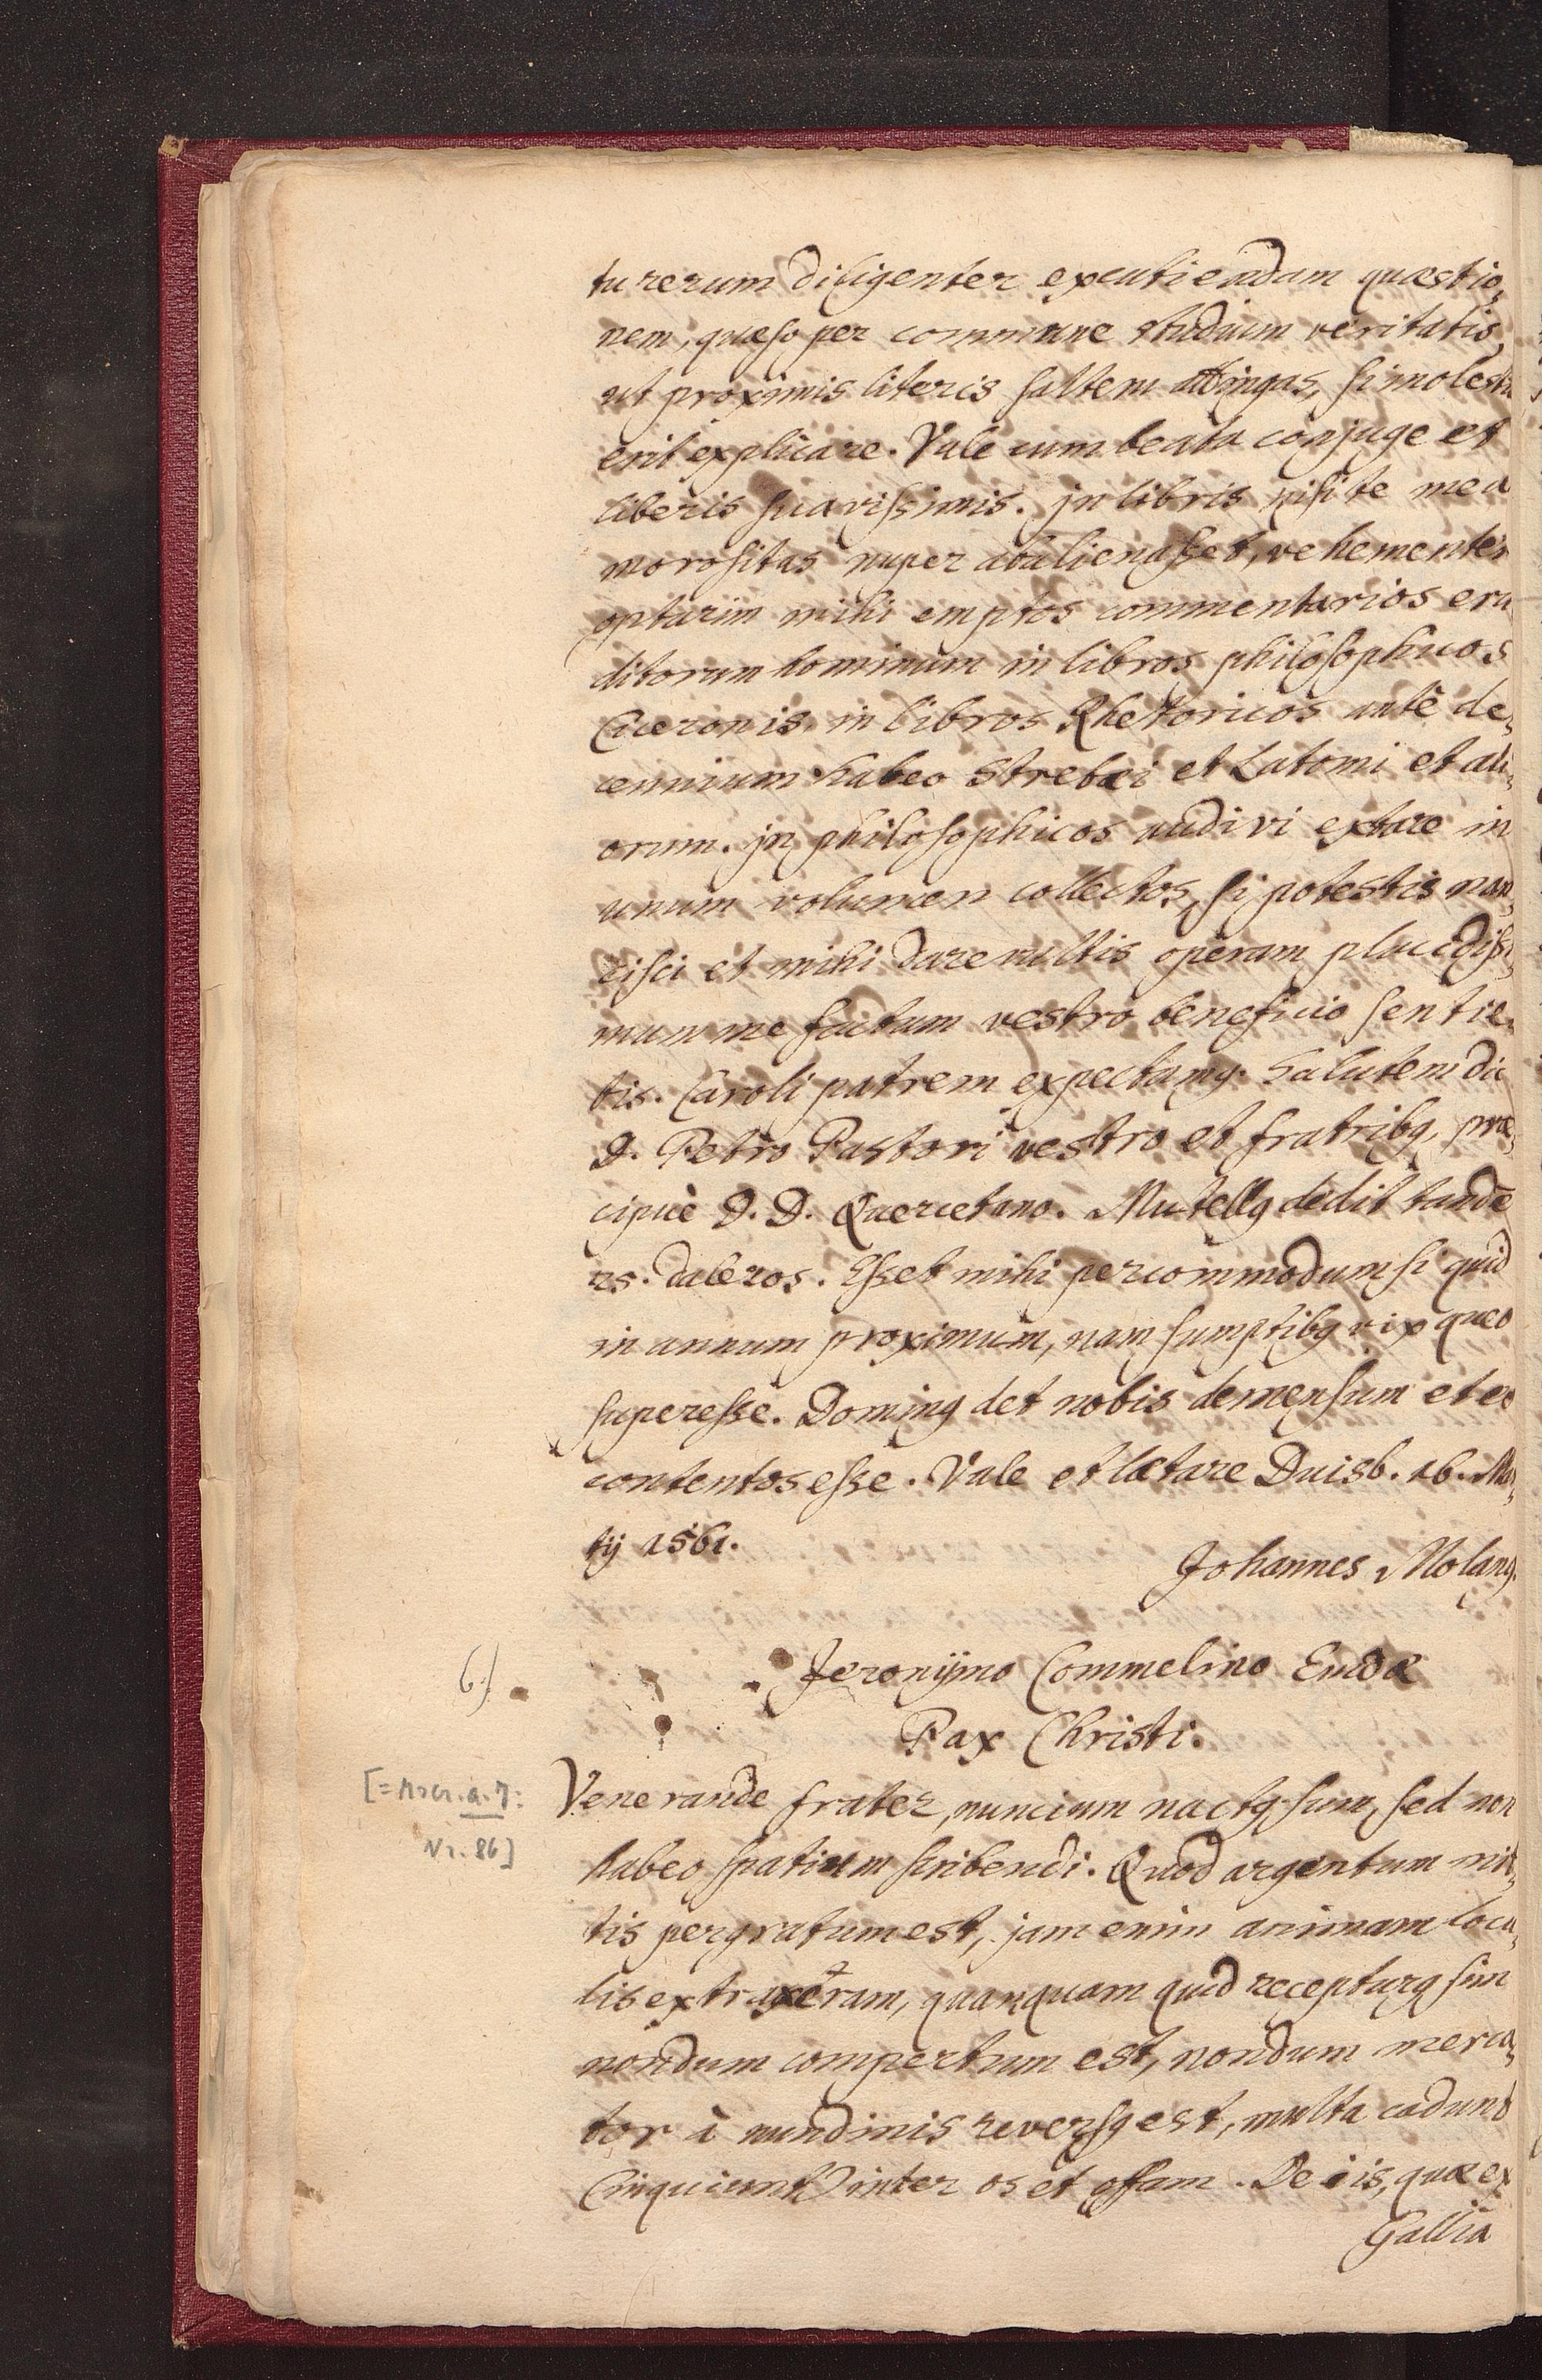 tu rerum diligenter excutiendam quæstio,
nem, quæso per commune studium veritatis,
ut proximis literis saltem attingas, si molestũ
erit explicare. Vale cum beata conjuge et
liberis suavissimis. jn libris nisi te mea
morositas nuper abalienasset, vehementer
optarim mihi emptos commentarios eru
ditorum hominum in libros philosophicos
Ciceronis. in libros Rhetoricos ante de,
cennium habeo Strebæi et Latomi et ali,
orum. jn philosophicos audivi extare in
unum volumen collectos, si potestis nan,
cisci et mihi dare vultis operam placidissi,
mum me factum vestro beneficio sentie,
tis. Caroli patrem expectamꝰ. Salutem dic
D. Petro Pastori vestro et fratribꝰ, præ,
cipuè D. D. Quercetano. Mutellꝰ dedit tandẽ
25. daleros. Esset mihi percommodum si quid
in annum proximum, nam sumptibꝰ vix queo
superesse. Dominꝰ det nobis demensum et eo
contentos esse. Vale et lætare Duisb. 16. Ma,
tij 1561.
Johannes Molanꝰ.
6.)
Jeronÿmo Commelino Emdæ
Pax Christi.
[= Mscr. a. 7:
Nr. 86]
Venerande frater, nuncium nactꝰ sum, sed non
habeo spatium scribendi. Quod argentum mit,
tis pergratum est, jam enim animam locu,
lis extraxeram, quanquam quid recepturꝰ sim
nondum compertum est, nondum merca,
tor à nundinis reversꝰ est, multa cadunt
(inquiunt) inter os et offam. De iis, quæ ex
Gallia